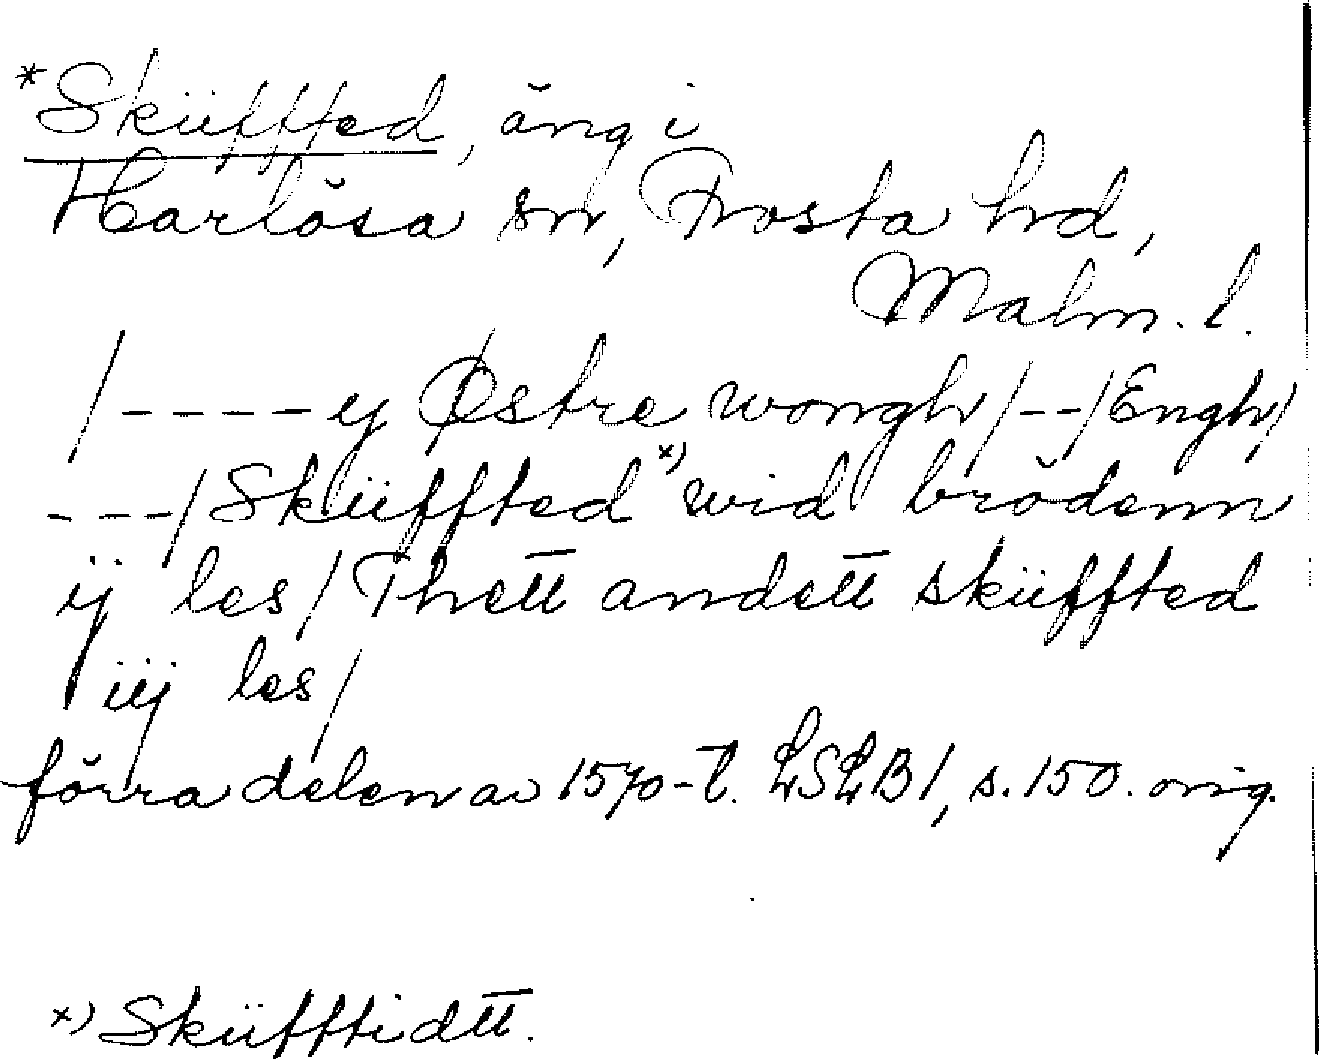 *Sküffted, äng i
Harlösa sn, Frosta hd,
Malm. l.
/----y Østre wongh/--/Engh/
---/Sküffted x) wid brödenn
ÿ les/Thett andett sküffted
iij les/
förra delen av 1570-t. LSLB1, s.150. orig.
x) Sküfftidtt.